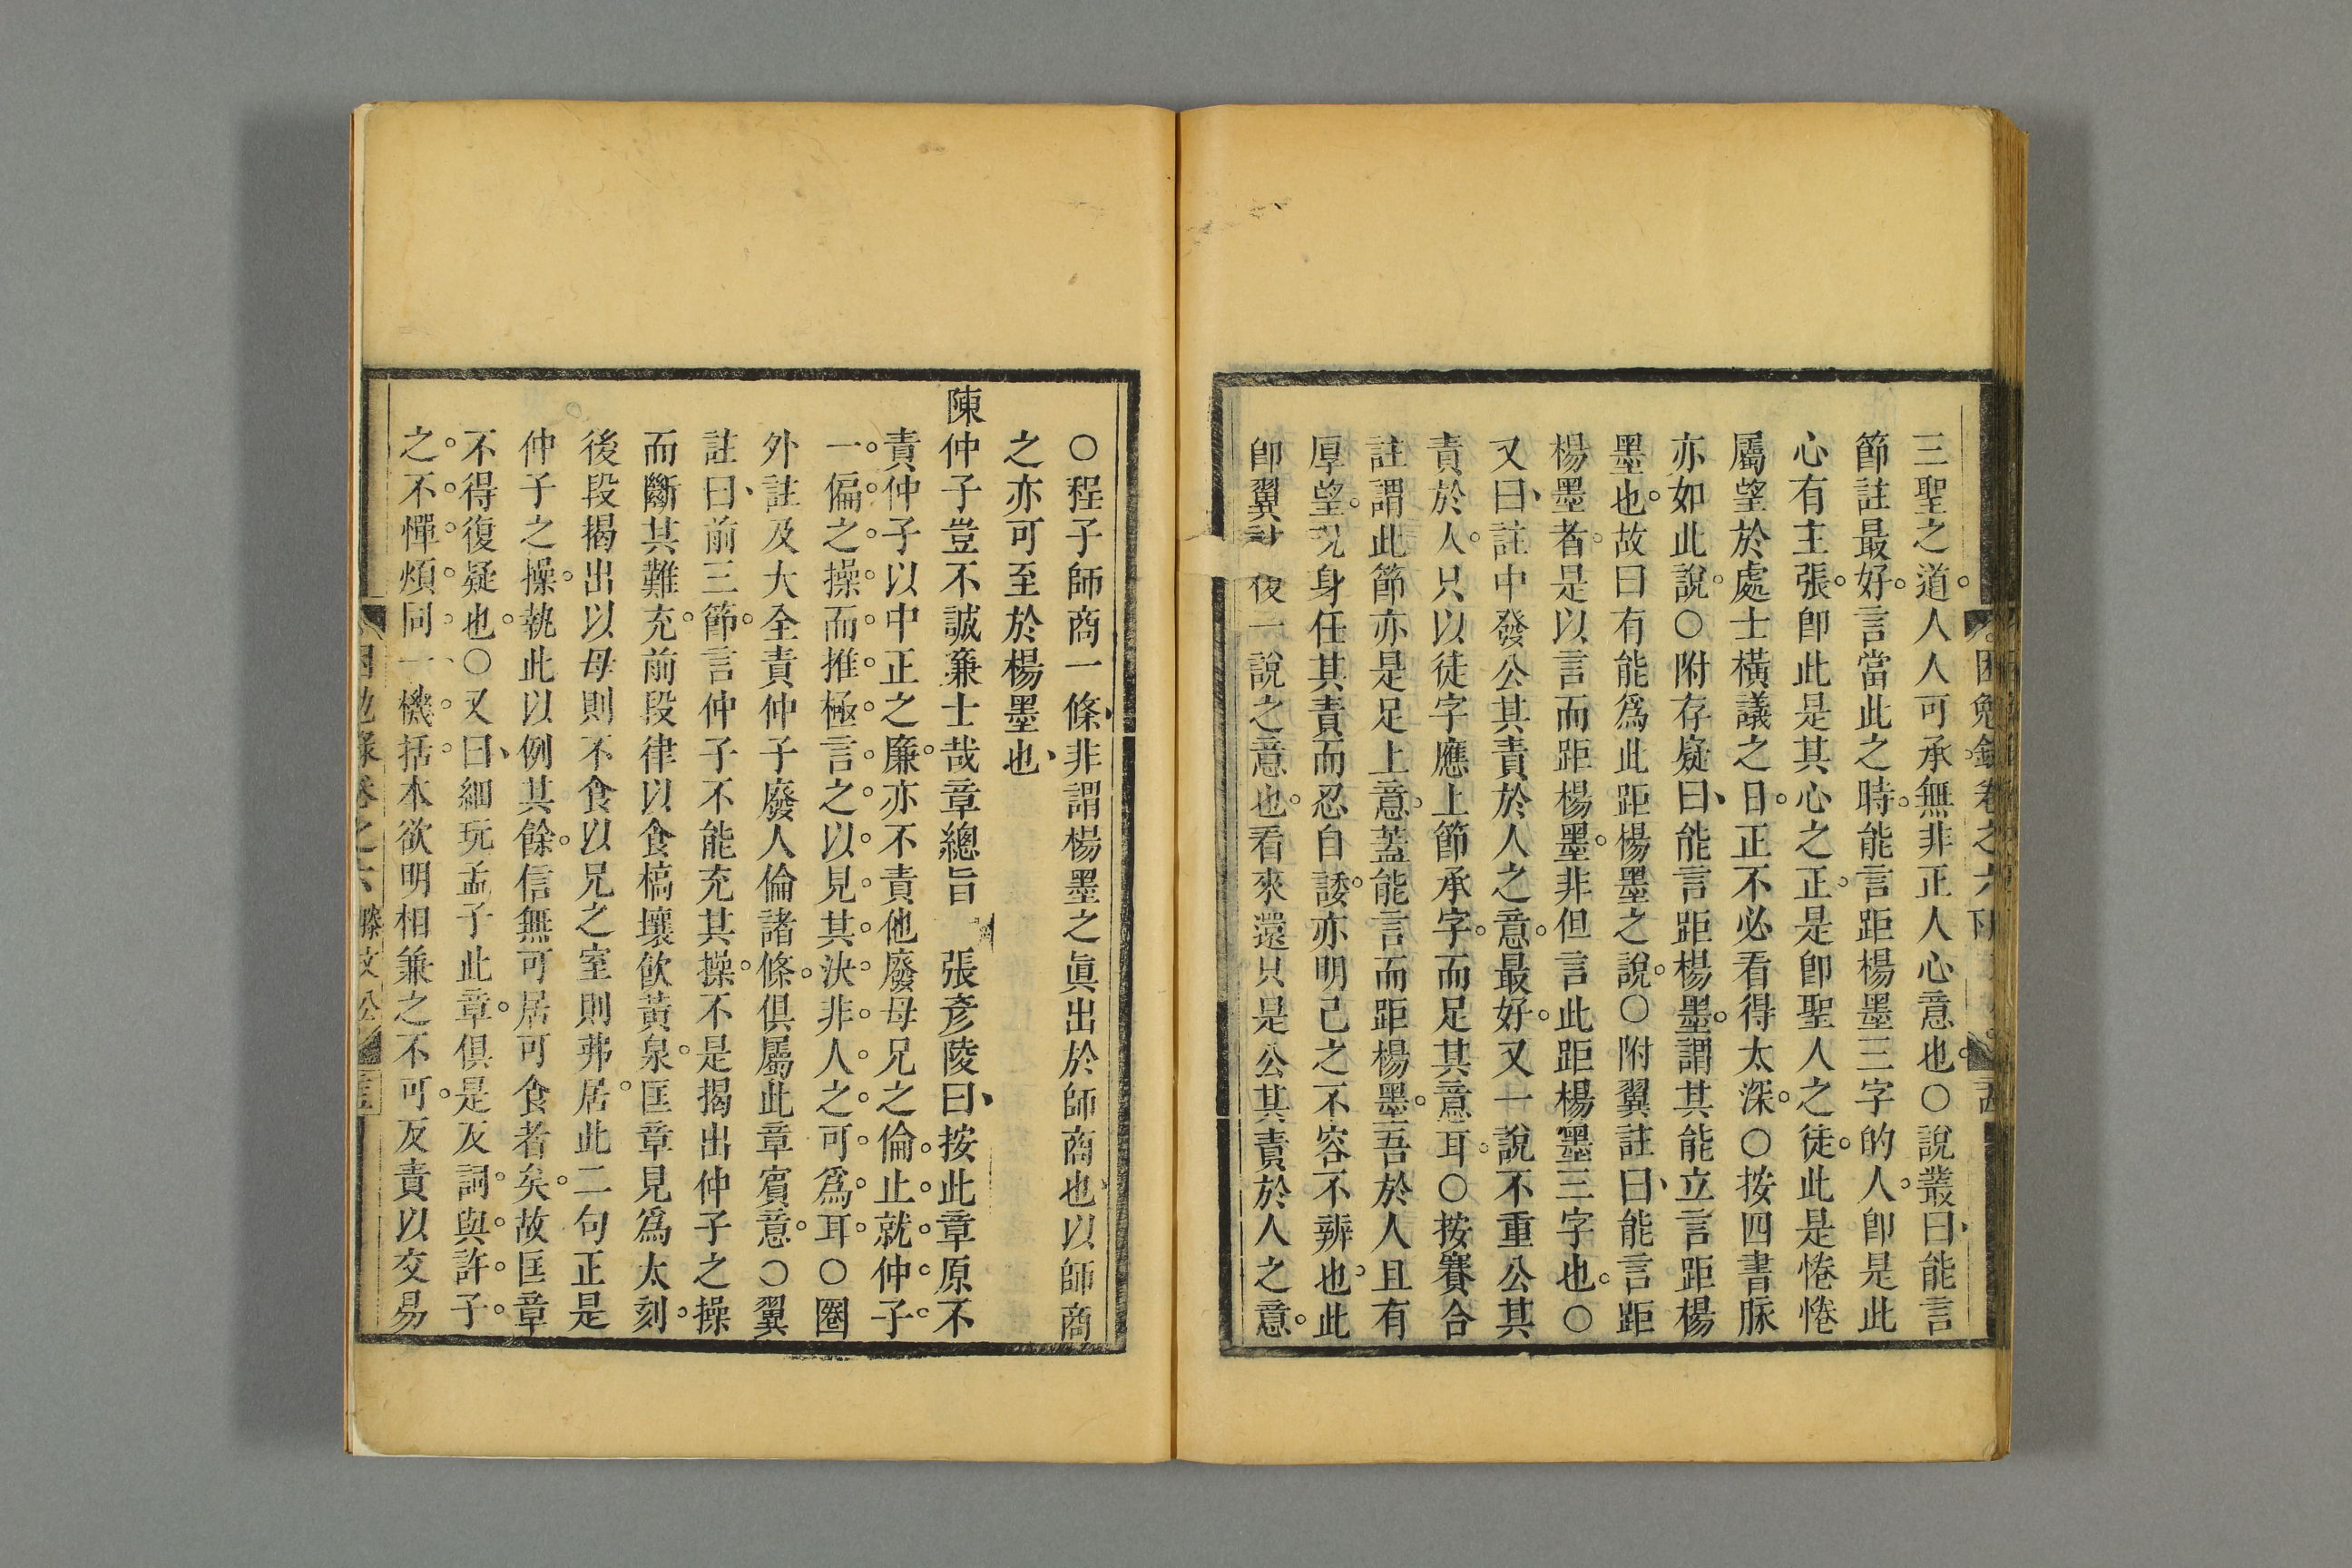 困勉錄卷之六下
三聖之道人人可承無非正人心意也○說叢曰能言
節註最好言當此之時能言距楊墨三字的人卽是此
心有主張卽此是其心之正是卽聖人之徒此是惓惓
屬望於處士橫議之日正不必看得太深○按四書脉
亦如此說○附存疑曰能言距楊墨謂其能立言距楊
墨也故曰有能爲此距楊墨之說○附翼註曰能言距
楊墨者是以言而距楊墨非但言此距楊墨三字也○
又曰註中發公其責於人之意最好又一說不重公其
責於人只以徒字應上節承字而足其意耳○按賽合
註謂此節亦是足上意蓋能言而距楊墨吾於人且有
厚望況身任其責而忍自諉亦明己之不容不辨也此
卽翼註後一說之意也看來還只是公其責於人之意
○程子師商一條非謂楊墨之眞出於師商也以師商
之亦可至於楊墨也
陳仲子豈不誠亷士哉章總旨 張彥陵曰按此章原不
責仲子以中正之廉亦不責他廢母兄之倫止就仲子
一偏之操而推極言之以見其決非人之可爲耳○圈
外註及大全責仲子廢人倫諸條俱屬此章賓意○翼
註曰前三節言仲子不能充其操不是揭出仲子之操
而斷其難充前段律以食槁壤飮黃泉匡章見爲太刻
後段揭出以母則不食以兄之室則弗居此二句正是
仲子之操執此以例其餘信無可居可食者矣故匡章
不得復疑也○又曰細玩孟子此章俱是反詞與許子
之不憚煩同一機括本欲明相兼之不可反責以交易
困勉錄卷之六 滕文公